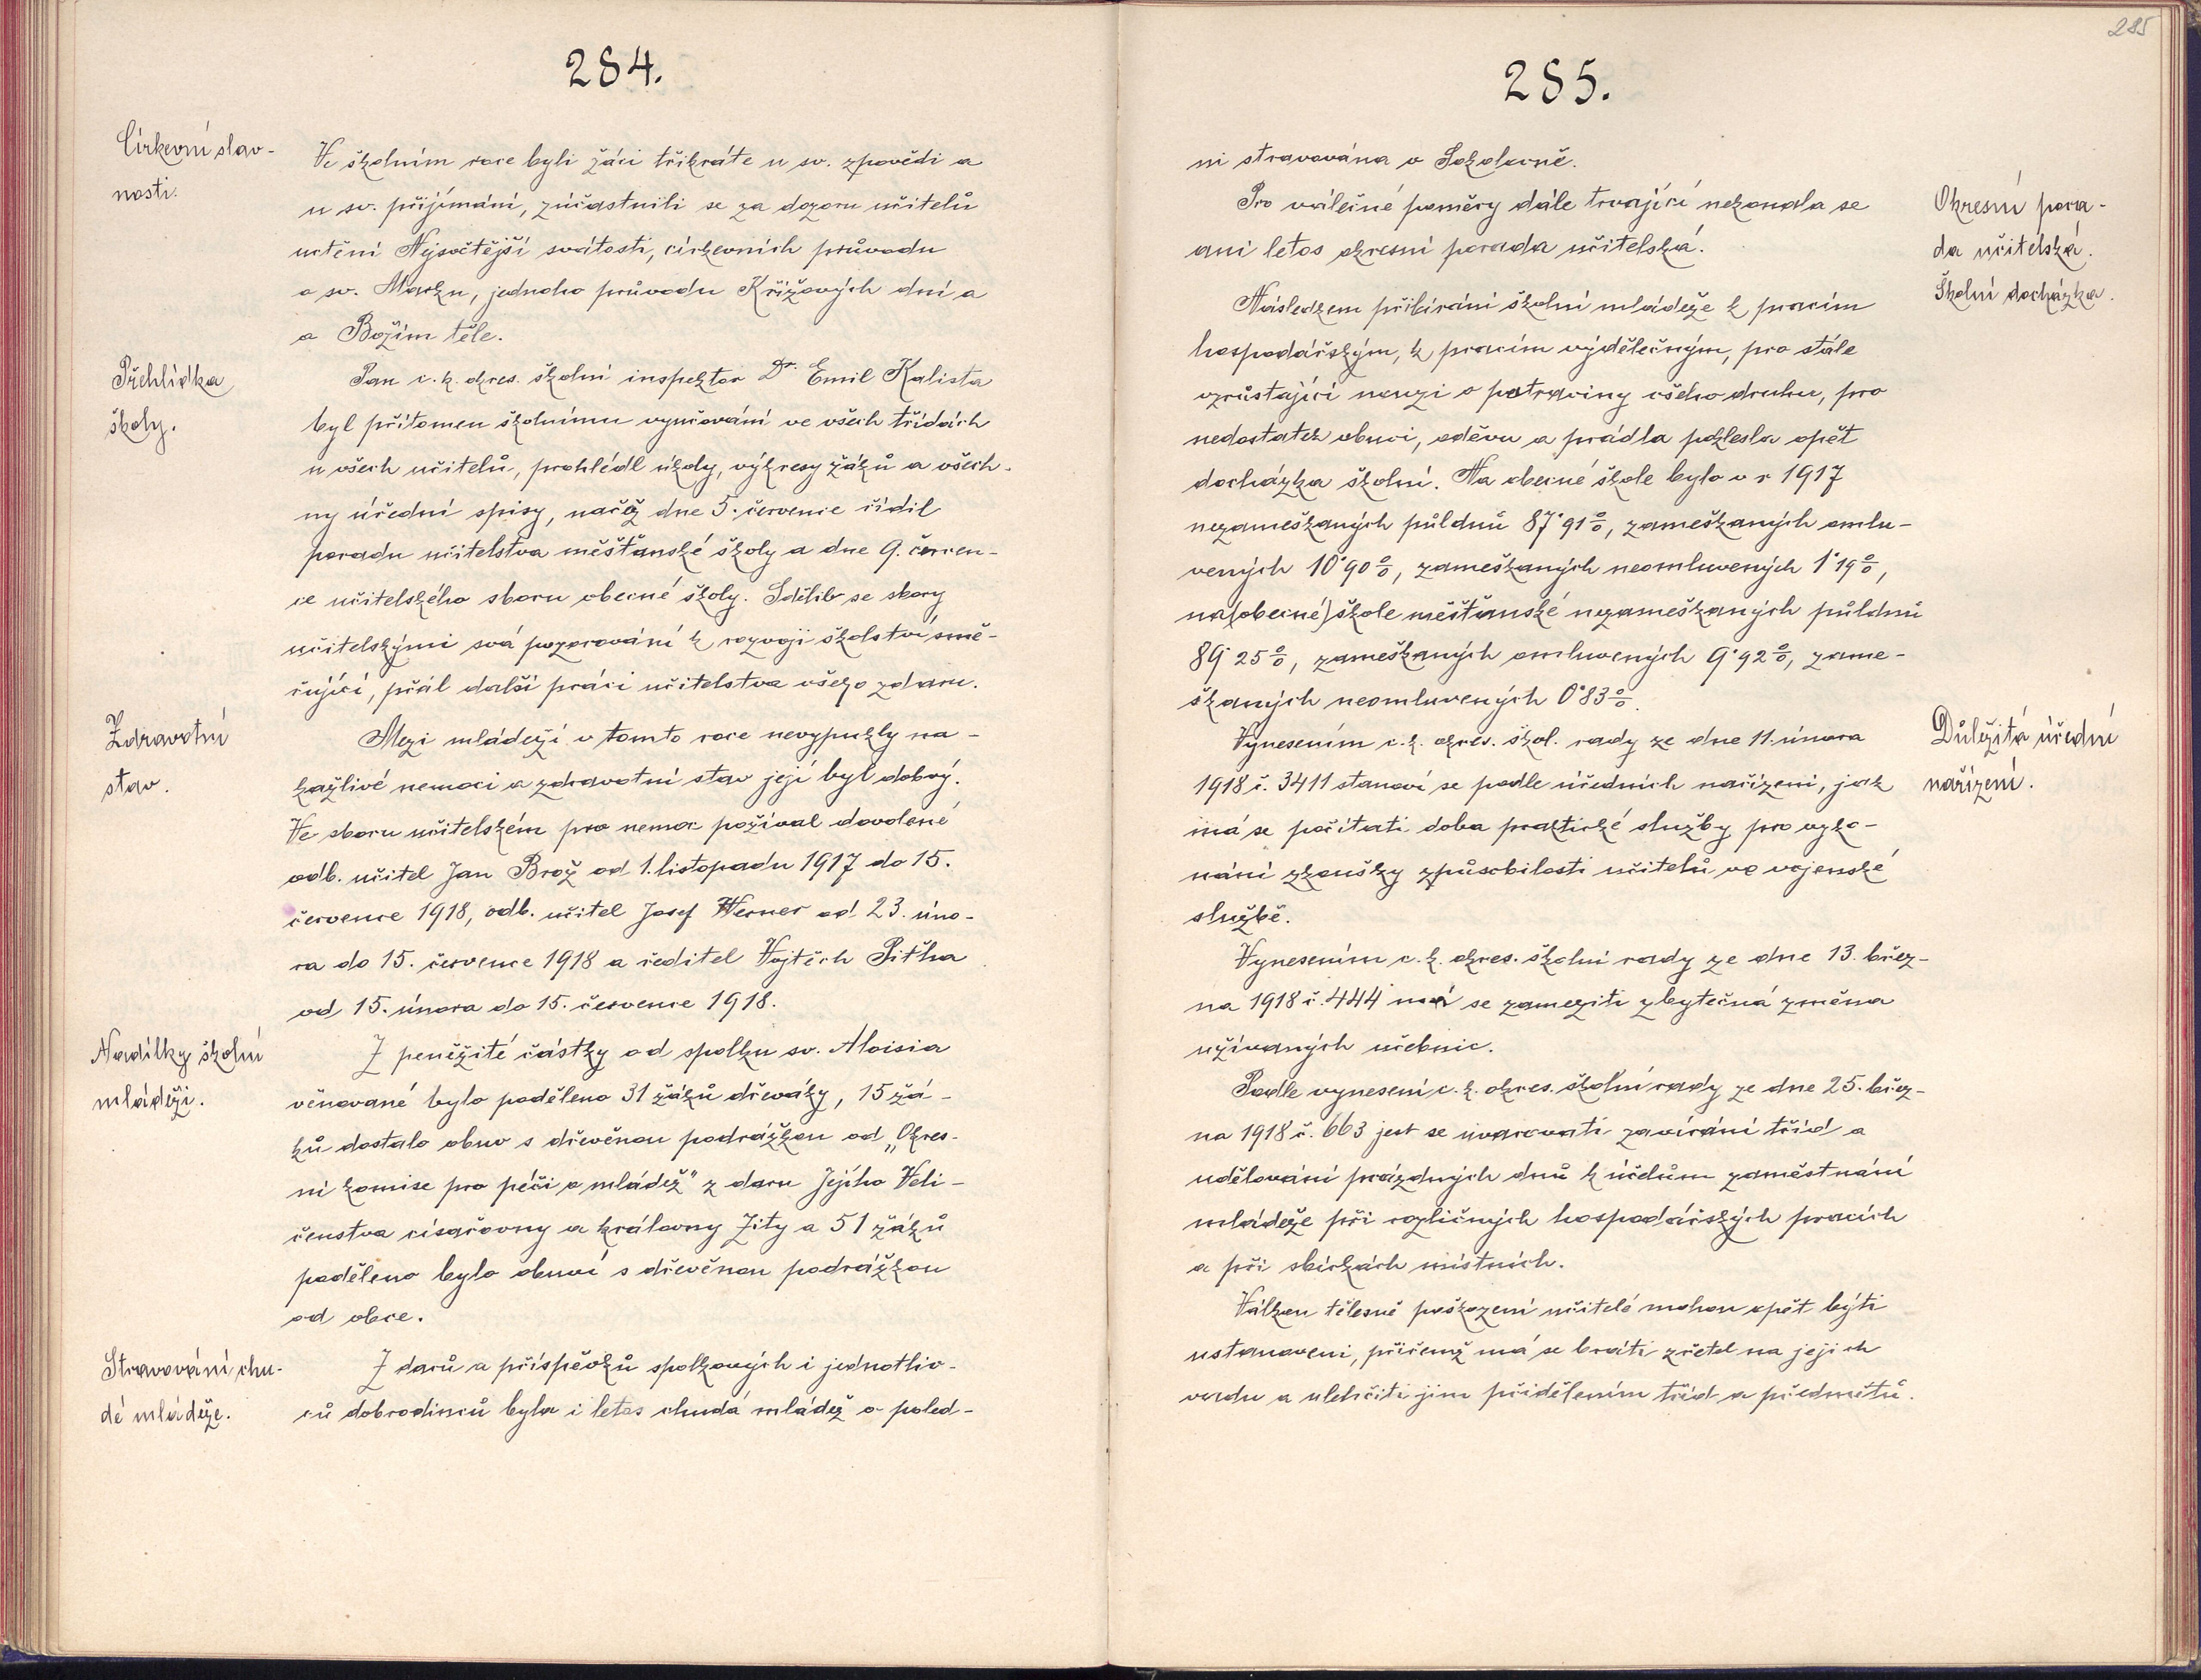 284.
Církevní slav-
nosti.
Ve školním roce byli žáci třikráte u sv. zpovědi a
u sv. přijímání, zúčastnili se za dozoru učitelů
uctění Nejsvětější svátosti, církevních průvodu
o sv. Marku, jednoho průvodu Křížových dní a
o Božím těle.
Přehlídka
školy.
Pan c. k. okres. školní inspektor Dr. Emil Kalista
byl přítomen školnímu vyučování ve všech třídách
u všech učitelů, prohlédl úkoly, výkresy žáků a všech-
ny úřední spisy, načež dne 5. července řídil
poradu učitelstva měšťanské školy a dne 9. červen-
ce učitelského sboru obecné školy. Sděliv se sbory
učitelskými svá pozorování k rozvoji školství smě-
řující, přál další práci učitelstva všeho zdaru.
Zdravotní
stav.
Mezi mládeží v tomto roce nevypukly na-
kažlivé nemoci a zdravotní stav její byl dobrý.
Ve sboru učitelském pro nemoc požíval dovolené
odb. učitel Jan Brož od 1. listopadu 1917 do 15.
července 1918, odb. učitel Josef Werner od 23. úno-
ra do 15. července 1918 a ředitel Vojtěch Pitha
od 15. února do 15. července 1918.
Nadílky školní
mládeži.
Z peněžité částky od spolku sv. Aloisia
věnované bylo poděleno 31 žáků dřeváky, 15 žá-
ků dostalo obuv s dřevěnou podrážkou od „Okres-
ní komise pro péči o mládež" z daru Jejího Veli-
čenstva císařovny a královny Zity a 51 žáků
poděleno bylo obuví s dřevěnou podrážkou
od obce.
Stravování chu-
dé mládeže.
Z darů a příspěvků spolkových i jednotliv-
ců dobrodinců byla i letos chudá mládež v poled-
285
285.
ni stravována v Sokolovně.
Okresní pora-
da učitelská.
Pro válečné poměry dále trvající nekonala se
ani letos okresní porada učitelská.
Školní docházka.
Následkem přibírání školní mládeže k pracím
hospodářským, k pracím výdělečným, pro stále
vzrůstající nouzi o potraviny všeho druhu, pro
nedostatek obuvi, oděvu a prádla poklesla opět
docházka školní. Na obecné škole bylo v r 1917
nezameškaných půldnů 87·91%, zameškaných omlu-
vených 10·90%, zameškaných neomluvených 1·19%,
na (obecné) škole měšťanské nezameškaných půldnů
89·25%, zameškaných omluvených 9·92%, zame-
škaných neomluvených 0·83%.
Důležitá úřední
nařízení.
Vynesením c. k. okres. škol. rady ze dne 11. února
1918 č. 3411 stanoví se podle úředních nařízení, jak
má se počítati doba praktické služby pro vyko-
nání zkoušky způsobilosti učitelů ve vojenské
službě.
Vynesením c. k. okres. školní rady ze dne 13. břez-
na 1918 č. 444 má se zameziti zbytečná změna
užívaných učebnic.
Podle vynesení c. k. okres. školní rady ze dne 25. břez-
na 1918 č. 663 jest se uvarovati zavírání tříd a
udělování prázdných dnů k účelům zaměstnání
mládeže při rozličných hospodářských pracích
a při sbírkách místních.
Válkou tělesně poškození učitelé mohou opět býti
ustanoveni, přičemž má se bráti zřetel na jejich
vadu a ulehčiti jim přidělením tříd a předmětů.